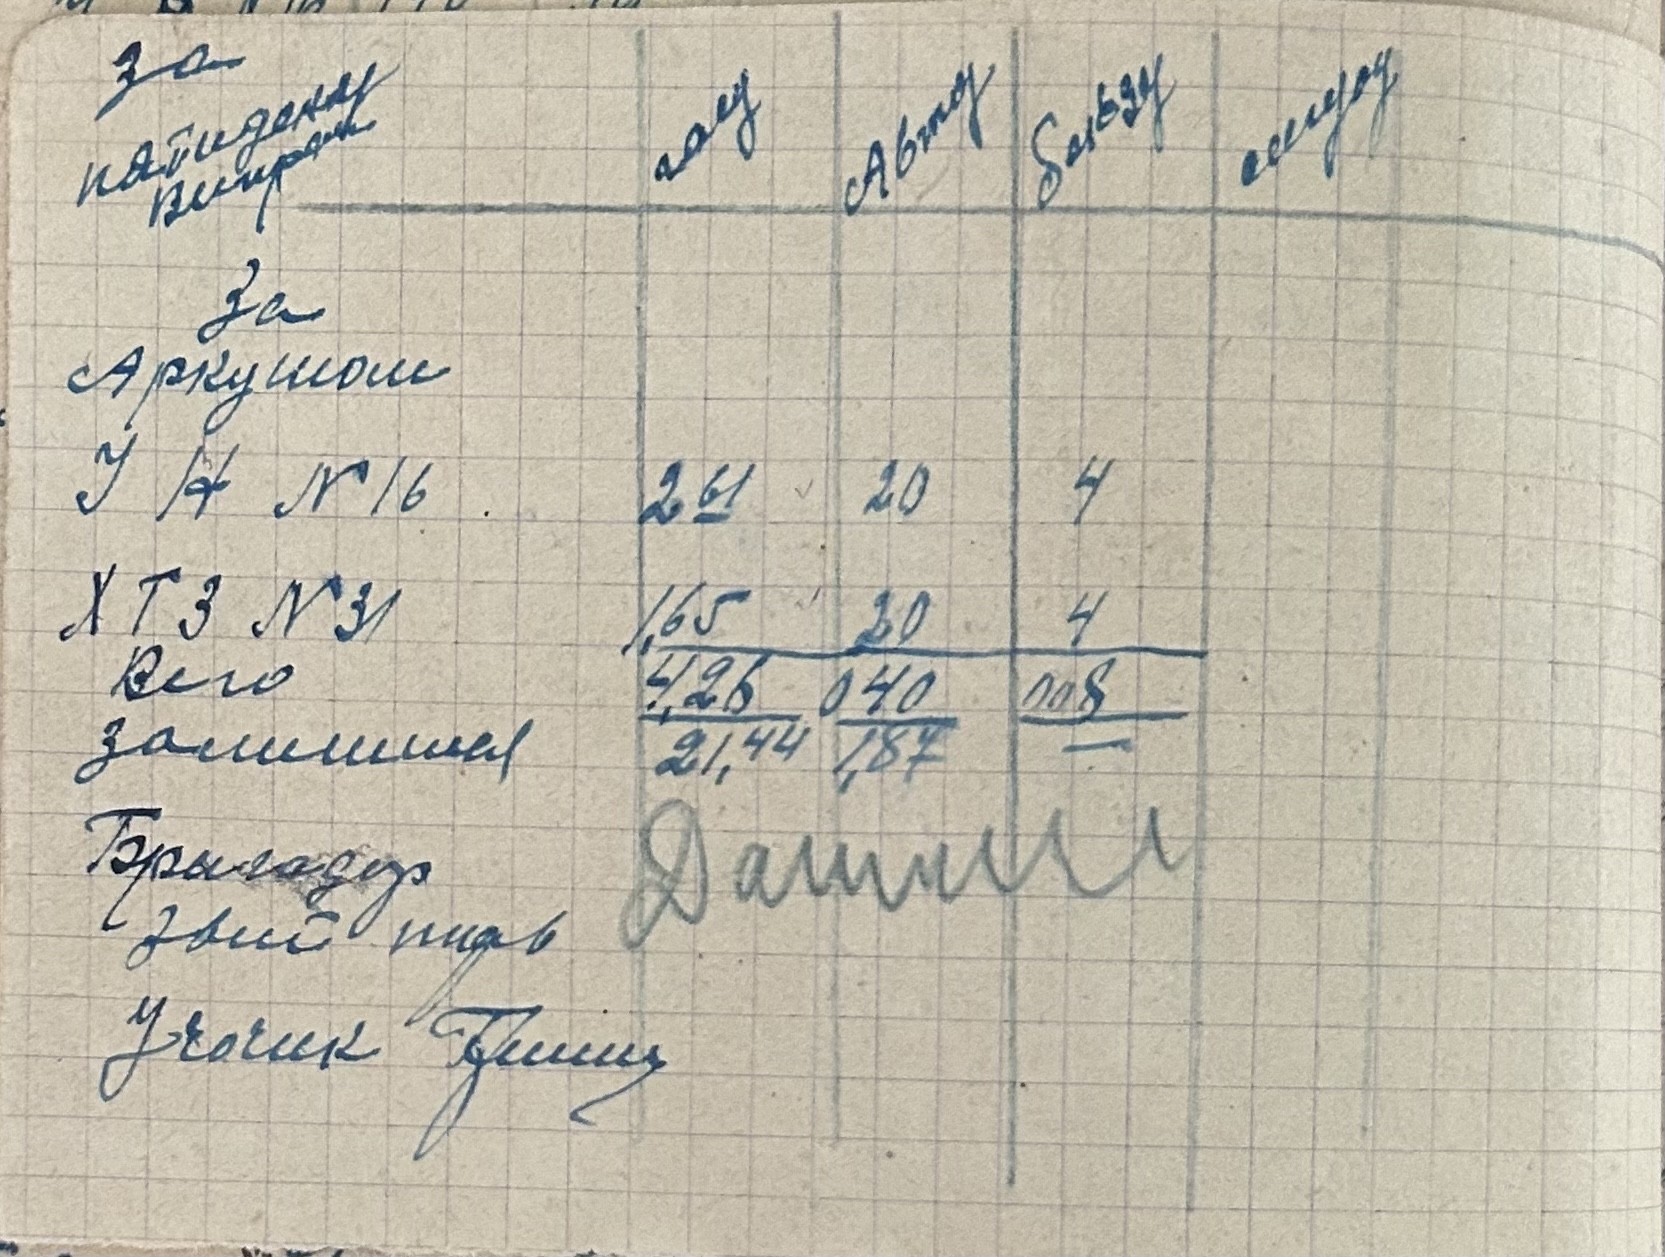 За
пятиденку
Витрат
гасу
Автолу
бензу
солидолу
За
Аркушом
У Н №16 261 20 4
ХТЗ №31 1,65 20 4
Всего 4,26 040 008
Залишився 21,44 1,87 —
Бригадир
Звит прав
Учочик